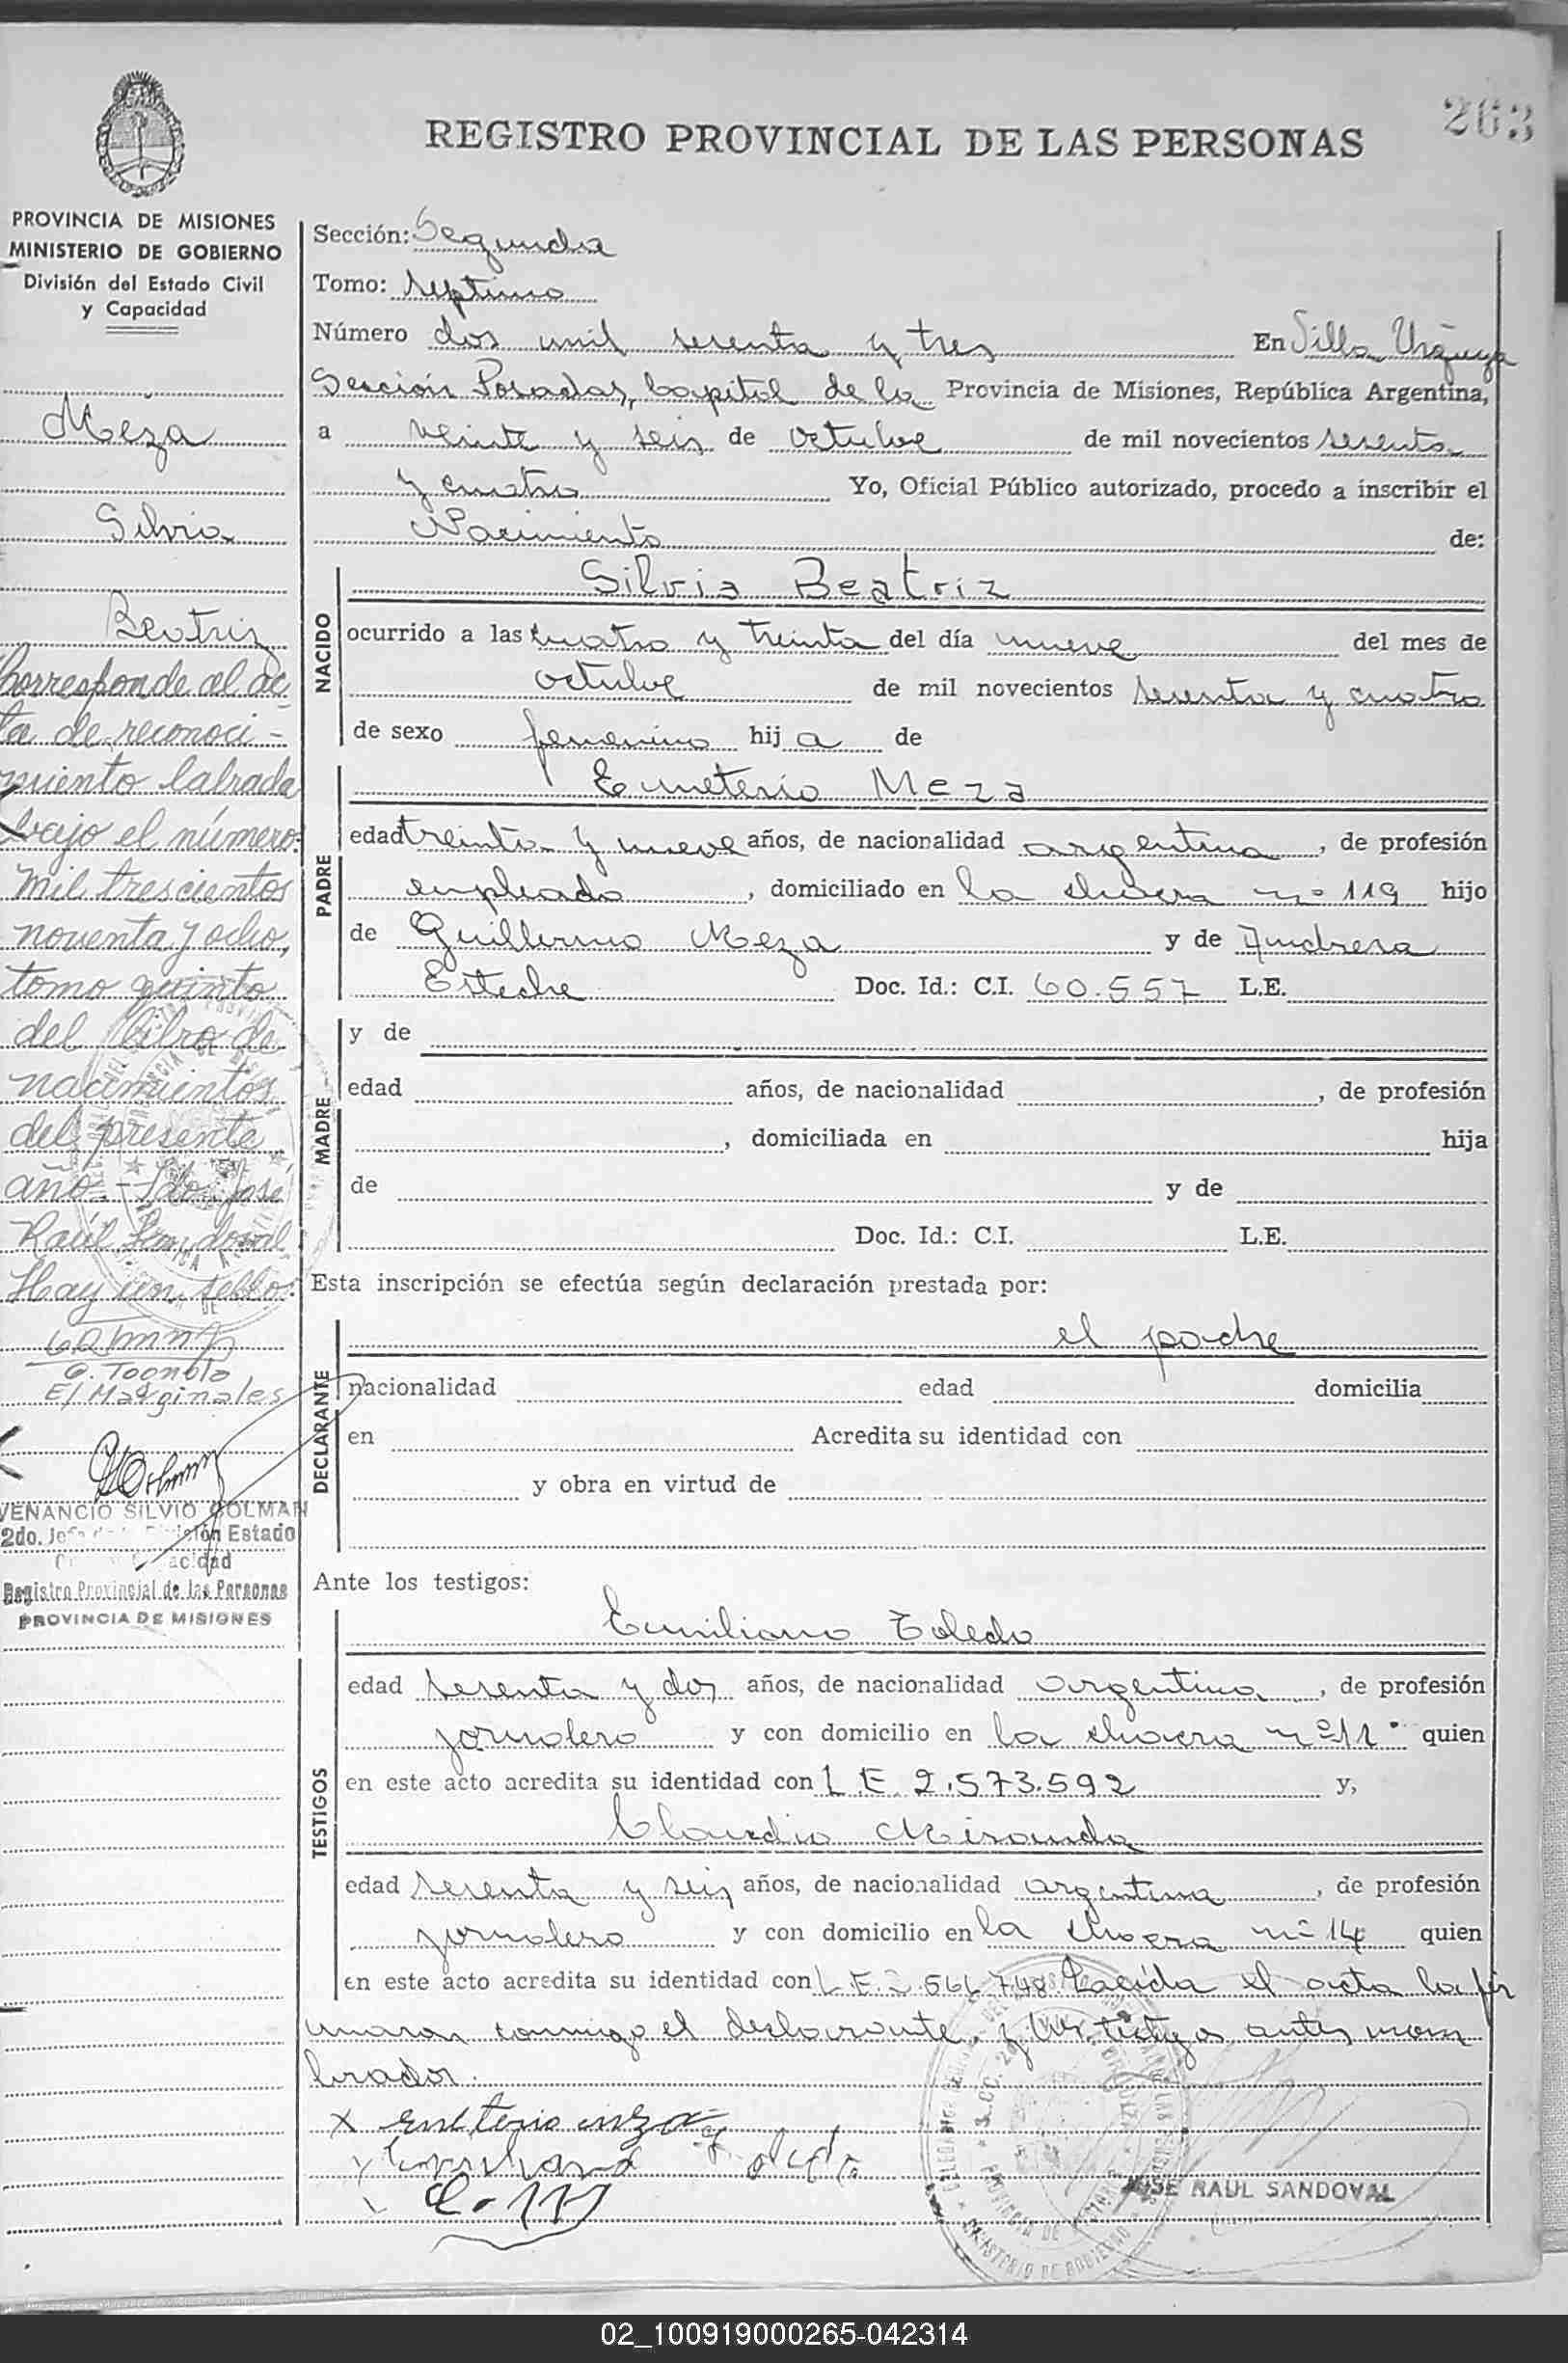 263
REGISTRO PROVINCIAL DE LAS PERSONAS
PROVINCIA DE MISIONES
MINISTERIO DE GOBIERNO
División del Estado Civil
y Capacidad
Meza
Silvia
Beatriz
Corresponde al ac-
ta de reconoci-
miento labrada
bajo el número:
mil trescientos
noventa y ocho,
tomo quinto
del libro de
nacimientos
del presente
año.- Fdo. José
Raúl Sandoval
Hay un sello.
E/Marginales
VENANCIO SILVIO GOLMAN
2do. Jefe División Estado
Capacidad
Registro Provincial de las Personas
PROVINCIA DE MISIONES
Sección: Segunda
Tomo: septimo
Número dos mil sesenta y tres En Villa Urquiza
Sección Posadas, Capital de la Provincia de Misiones, República Argentina,
a veinte y seis de octubre de mil novecientos sesenta
y cuatro Yo, Oficial Público autorizado, procedo a inscribir el
Nacimiento de:
NACIDO
Silvia Beatriz
ocurrido a las cuatro y treinta del día nueve del mes de
octubre de mil novecientos sesenta y cuatro
de sexo femenino hij a de
PADRE
Emeterio Meza
edad treinta y nueve años, de nacionalidad argentina, de profesión
empleado, domiciliado en la chacra nº 119 hijo
de Guillermo Meza y de Andresa
Esteche Doc. Id.: C.I. 60.557 L.E.
MADRE
y de
edad años, de nacionalidad , de profesión
, domiciliada en hija
de y de
Doc. Id.: C.I. L.E.
Esta inscripción se efectúa según declaración prestada por:
DECLARANTE
el padre
nacionalidad edad domicilia
en Acredita su identidad con
y obra en virtud de
Ante los testigos:
TESTIGOS
Emiliano Toledo
edad sesenta y dos años, de nacionalidad argentina, de profesión
jornalero y con domicilio en la chacra nº 11 quien
en este acto acredita su identidad con L.E. 2.573.592 y,
Claudio Miranda
edad sesenta y seis años, de nacionalidad argentina, de profesión
jornalero y con domicilio en la chacra nº 14 quien
en este acto acredita su identidad con L.E. 748 Leída el acta la fir
maron conmigo el declarante y los testigos antes nom
brados.
x emeterio meza
x Emiliano Toledo
JOSE RAUL SANDOVAL
02_100919000265-042314